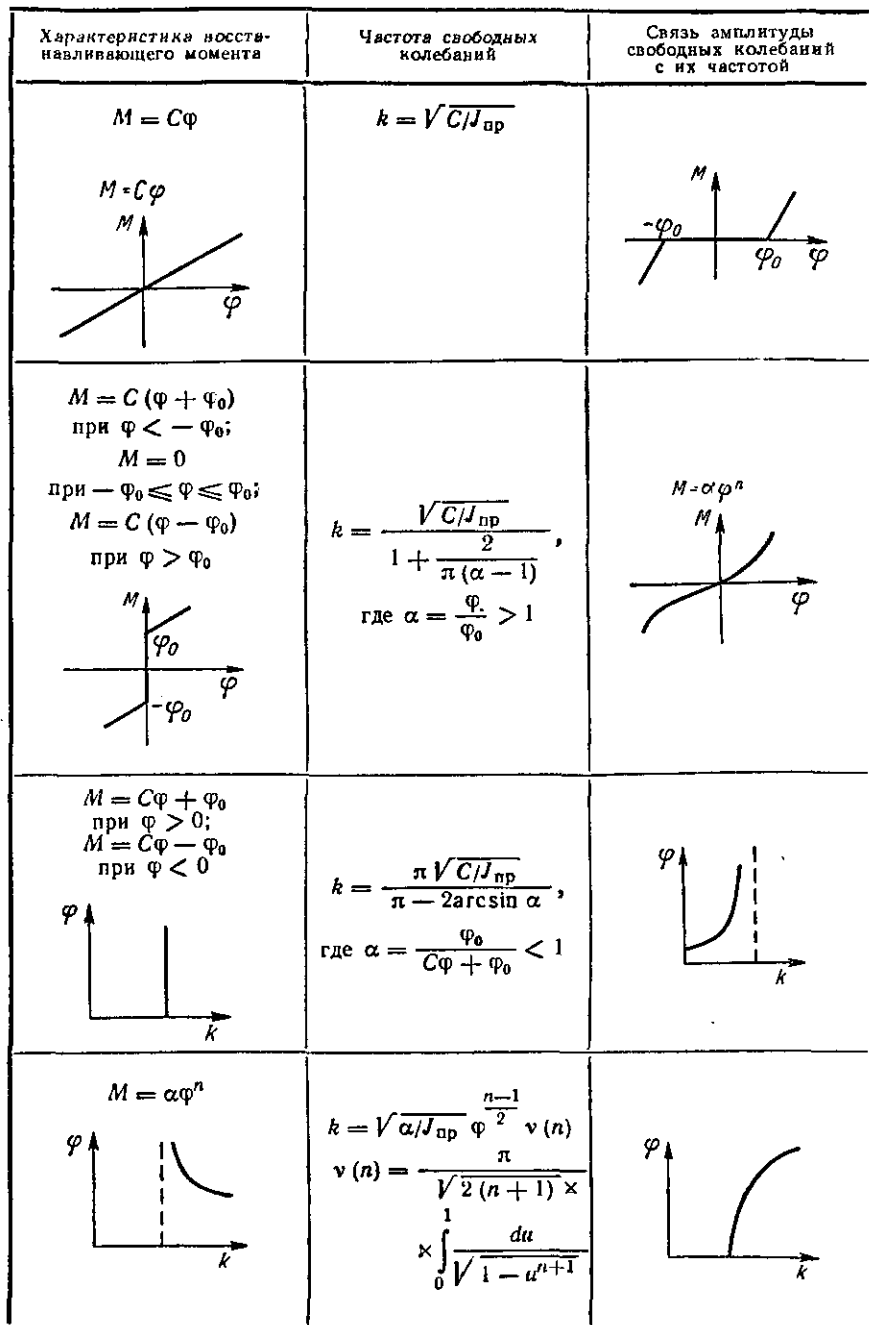 Характеристика восста-
навливающего момента
Частота свободных
колебаний
Связь амплитуды
свободных колебаний
с их частотой
M = Cφ
M = Cφ
M
φ
k = √C/J_пр
M
-φ₀
φ₀
φ
M = C (φ + φ₀)
при φ < — φ₀;
M = 0
при — φ₀ ⩽ φ ⩽ φ₀;
M = C (φ — φ₀)
при φ > φ₀
M
φ₀
-φ₀
φ
k = √C/J_пр / (1 + 2 / (π (α — 1))),
где α = φ. / φ₀ > 1
M = αφⁿ
M
φ
M = Cφ + φ₀
при φ > 0;
M = Cφ — φ₀
при φ < 0
φ
k
k = π √C/J_пр / (π — 2arcsin α),
где α = φ₀ / (Cφ + φ₀) < 1
φ
k
M = αφⁿ
φ
k
k = √α/J_пр φ^((n—1)/2) ν (n)
ν (n) = π / √2 (n + 1) ×
× ∫₀¹ du / √1 — uⁿ⁺¹
φ
k